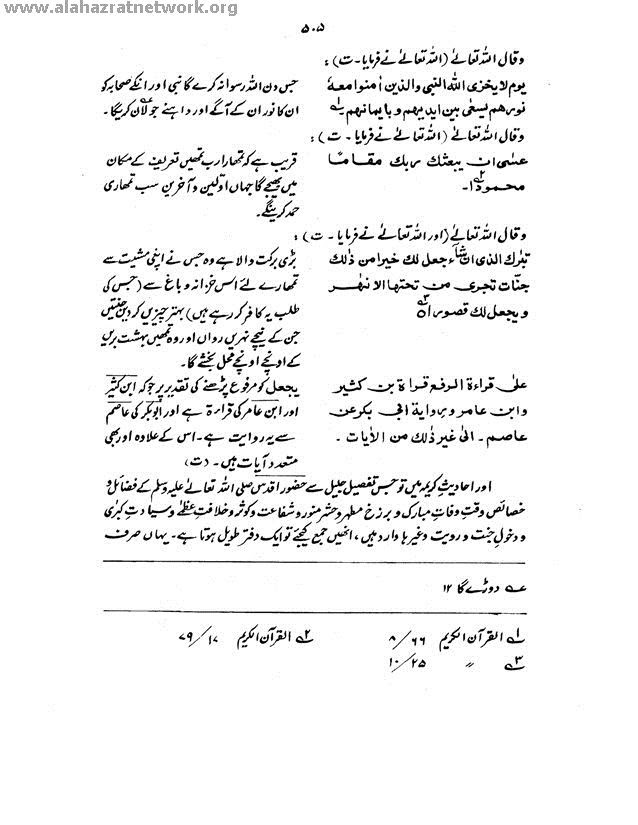 www.alahazratnetwork.org
۵۰۵
وقال اللہ تعالٰی (اللہ تعالٰی نے فرمایا۔ت) :
یوم لا یخزی اللہ النبی والذین اٰمنوا معہ
نورھم یسعٰی بین ایدیھم و بایمانھم ۱؎
جس دن اللہ رسوا نہ کرے گا نبی اور انکے صحابہ کو
ان کا نور ان کے آگے اور داہنے جولان ؎ کریگا۔
وقال اللہ تعالٰی (اللہ تعالٰی نے فرمایا۔ ت) :
عسٰی ان یبعثک ربک مقامًا
محمودًا ۲؎۔
قریب ہے کہ تمھارا رب تمھیں تعریف کے مکان
میں بھیجے گا جہاں اوّلین و آخرین سب تمھاری
حمد کرینگے۔
وقال اللہ تعالٰی (اور اللہ تعالٰی نے فرمایا ۔ ت) :
تبٰرک الذی ان شاء جعل لک خیرا من ذٰلک
جنّات تجری من تحتھا الانھٰر
و یجعل لک قصورا ۳؎
بڑی برکت والا ہے وہ جس نے اپنی مشیت سے
تمھارے لئے اس خزانہ و باغ سے (جس کی
طلب یہ کافر کر رہے ہیں) بہتر چیزیں کر دیں جنتیں
جن کے نیچے نہریں رواں اور وہ تمھیں بہشت بریں
کے اونچے اونچے محل بخشے گا۔
علٰی قراءۃ الرفع قراۃ بن کثیر
وابن عامر و بروایۃ ابی بکر عن
عاصم ۔ الٰی غیر ذٰلک من الاٰیات ۔
یجعل کو مرفوع پڑھنے کی تقدیر پر جو کہ ابن کثیر
اور ابن عامر کی قراءۃ ہے اور ابوبکر کی عاصم
سے یہ روایت ہے۔ اس کے علاوہ اور بھی
متعدد آیات ہیں ۔ (ت)
اور احادیثِ کریمہ میں تو جس تفصیل جلیل سے حضور اقدس صلی اللہ تعالٰی علیہ وسلم کے فضائل و
خصائص وقتِ وفاتِ مبارک و برزخ مطہر و حشر منور و شفاعت و کوثر و خلافت عظمٰی و سیادتِ کبرٰی
و دخولِ جنت و رویت وغیرہا وارد ہیں ، انھیں جمع کیجئے تو ایک دفتر طویل ہوتا ہے۔ یہاں صرف
؎ دوڑے گا ۱۲
۱؎ القرآن الکریم ۶۶/ ۸
۲؎ القرآن الکریم ۱۷/ ۷۹
۳؎ ״ ۲۵/ ۱۰